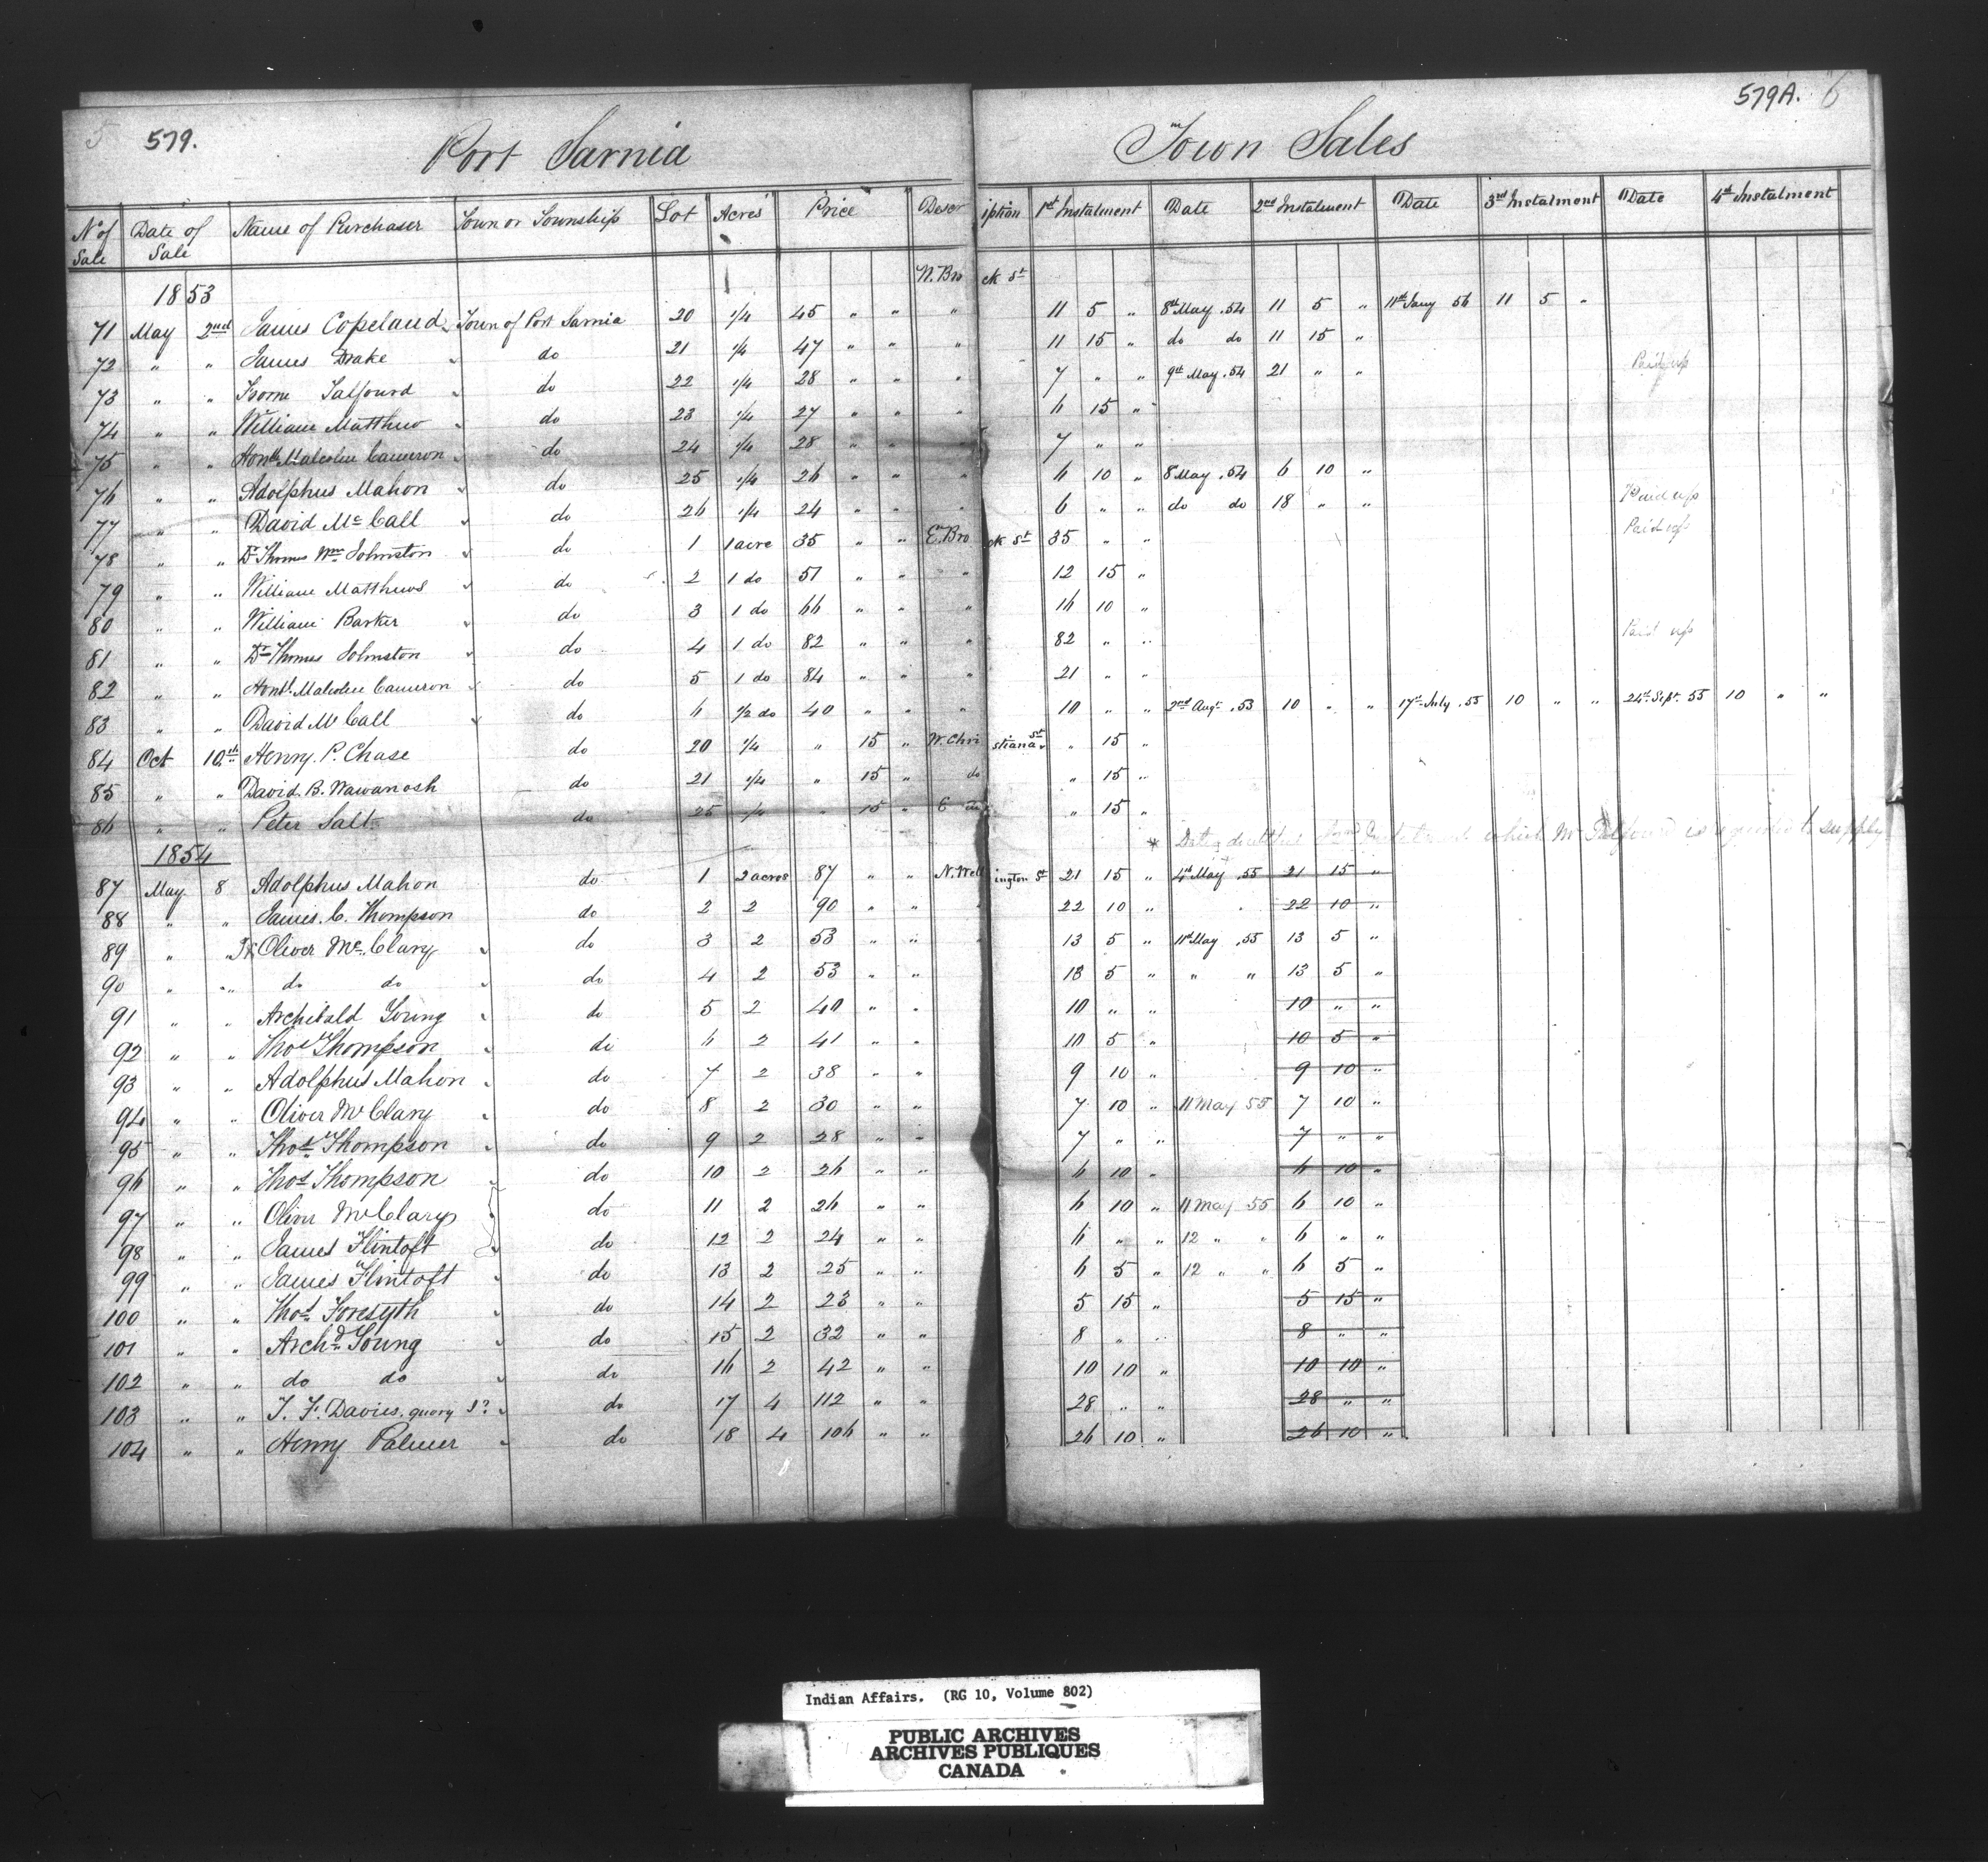 5 579. 579A. 6
Port Sarnia Town Sales
No of Sale Date of Sale Name of Purchaser Town or Township Lot Acres Price Description 1st Instalment Date 2nd Instalment Date 3rd Instalment Date 4th Instalment
1853 N. Brock St
71 May 2nd James Copeland Town of Port Sarnia 20 1/4 45 " " " 11 5 " 8th May .54 11 5 " 11th Jany 56 11 5 "
72 " " James Drake do 21 1/4 47 " " " 11 15 " do do 11 15 "
73 " " Froome Talfourd do 22 1/4 28 " " " 7 " " 9th May .54 21 " " Paid up
74 " " William Matthew do 23 1/4 27 " " " 6 15 "
75 " " Honble Malcolm Cameron do 24 1/4 28 " " " 7 " "
76 " " Adolphus Mahon do 25 1/4 26 " " " 6 10 " 8 May .54 6 10 "
77 " " David Mc Call do 26 1/4 24 " " " 6 " " do do 18 " " Paid up
78 " " Dr Thomas Wm Johnston do 1 1 acre 35 " " E. Brock St 35 " " Paid up
79 " " William Matthews do 2 1 do 51 " " " 12 15 "
80 " " William Barker do 3 1 do 66 " " " 16 10 "
81 " " Dr Thomas Johnston do 4 1 do 82 " " " 82 " " Paid up
82 " " Honbl Malcolm Cameron do 5 1 do 84 " " " 21 " "
83 " " David Mc Call do 6 1/2 do 40 " " " 10 " " 2nd Augt .53 10 " " 17th July .55 10 " " 24th Sept. 55 10 " "
84 Oct 10th Henry. P. Chase do 20 1/4 " 15 " W. Christiana St " 15 "
85 " " David. B. Wawanosh do 21 1/4 " 15 " do " 15 "
86 " " Peter Salt do 25 1/4 " 15 " E do " 15 "
1854 * which Mr Talfourd is requested to supply
87 May 8 Adolphus Mahon do 1 2 acres 87 " " N. Wellington St 21 15 " 4th May .55 21 15 "
88 " " James. C. Thompson do 2 2 90 " " " 22 10 " 22 10 "
89 " " Oliver Mc. Clary do 3 2 53 " " " 13 5 " 11th May .55 13 5 "
90 " " do do do 4 2 53 " " 13 5 " " " 13 5 "
91 " " Archibald Young do 5 2 40 " " 10 " " 10 " "
92 " " Thos Thompson do 6 2 41 " " 10 5 " 10 5 "
93 " " Adolphus Mahon do 7 2 38 " " 9 10 " 9 10 "
94 " " Oliver Mc Clary do 8 2 30 " " 7 10 " 11 May 55 7 10 "
95 " " Thos Thompson do 9 2 28 " " 7 " " 7 " "
96 " " Thos Thompson do 10 2 26 " " 6 10 " 6 10 "
97 " " Oliver Mc Clary do 11 2 26 " " 6 10 " 11 May 55 6 10 "
98 " " James Flintoft do 12 2 24 " " 6 " " 12 " " 6 " "
99 " " James Flintoft do 13 2 25 " " 6 5 " 12 " " 6 5 "
100 " " Thos Forsyth do 14 2 23 " " 5 15 " 5 15 "
101 " " Archd Young do 15 2 32 " " 8 " " 8 " "
102 " " do do do 16 2 42 " " 10 10 " 10 10 "
103 " " T. F. Davies. query J? do 17 4 112 " " 28 " " 28 " "
104 " " Henry Palmer do 18 4 106 " " 26 10 " 26 10 "
Indian Affairs. (RG 10, Volume 802)
PUBLIC ARCHIVES
ARCHIVES PUBLIQUES
CANADA